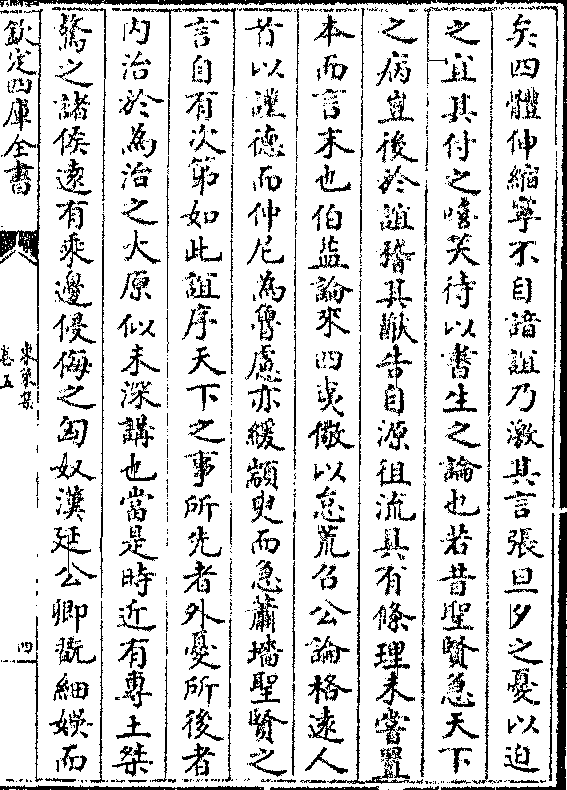 矣四體伸縮寧不自諳誼乃激其言張旦夕之憂以迫
之宜其付之嘻笑待以書生之論也若昔聖賢急天下
之病豈後於誼稽其猷告自源徂流具有條理未嘗置
本而言末也伯益論來四夷儆以怠荒召公論格遠人
首以謹德而仲尼為魯慮亦緩顓臾而急蕭墻聖賢之
言自有次第如此誼序天下之事所先者外憂所後者
内治於為治之大原似未深講也當是時近有專土桀
驁之諸侯遠有乘邊侵侮之匈奴漢廷公卿翫細娛而
欽定四庫全書
東萊集
卷五
四